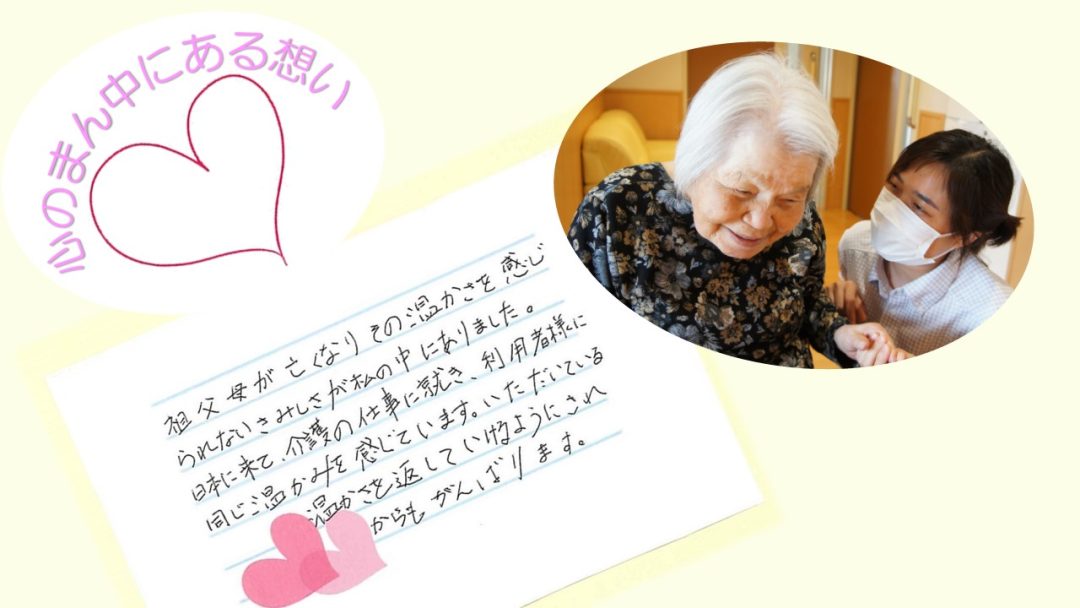 心のまん中にある想い
祖父母が亡くなりその温かさを感じ
られないさみしさが私の中にありました。
日本に来て、介護の仕事に就き、利用者様に
同じ温かみを感じています。いただいている
温かさを返していけるようにこれ
からもがんばります。